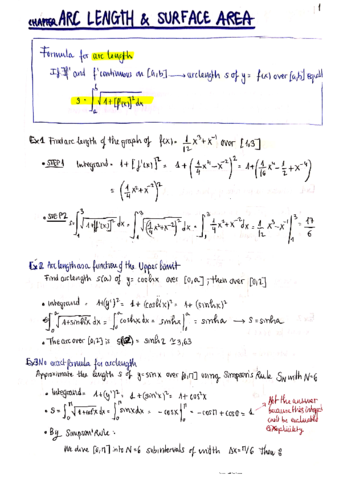 1
CHAPTER ARC LENGTH & SURFACE AREA
Formula for arc length
If f' and f' continuous on [a,b] → arclength s of y = f(x) over [a,b] equal
s = ∫_a^b √(1+[f'(x)]² dx
Ex1 Find arc length of the graph of f(x) = 1/12 x³ + x⁻¹ over [1,3]
• STEP1 Integrand = 1 + [f'(x)]² = 1 + (1/4 x² - x⁻²)² = 1 + (1/16 x⁴ - 1/2 + x⁻⁴)
= (1/4 x² + x⁻²)²
• STEP2 s = ∫_1^3 √(1+[f'(x)]²) dx = ∫_1^3 √((1/4 x² + x⁻²)²) dx = ∫_1^3 1/4 x² + x⁻² dx = 1/12 x³ - x⁻¹ |_1^3 = 17/6
Ex2 Arc length as a function of the Upper limit
Find arclength s(a) of y = coshx over [0,a]; then over [0,2]
• integrand = 1+(y')² = 1 + (cosh'x)² = 1 + (sinhx)²
s = ∫_0^a √(1+sinh²x) dx = ∫_0^a coshx dx = sinhx |_0^a = sinha → s = sinha
• The arc over [0,2] is s(2) = sinh2 ≈ 3,63
Ex3 No exact formula for arclength
Approximate the length s of y = sinx over [0,π] using Simpson's Rule S_N with N=6
• Integrand = 1+(y')² = 1+(sin'x)² = 1+cos²x
• S = ∫_0^π √(1+cos²x) dx = ∫_0^π sinx dx = -cosx |_0^π = -cosπ + cos0 =
Not the answer
because this integral
can't be evaluated
explicitly
• By Simpson's Rule:
We divide [0,π] into N=6 subintervals of width Δx = π/6 Then